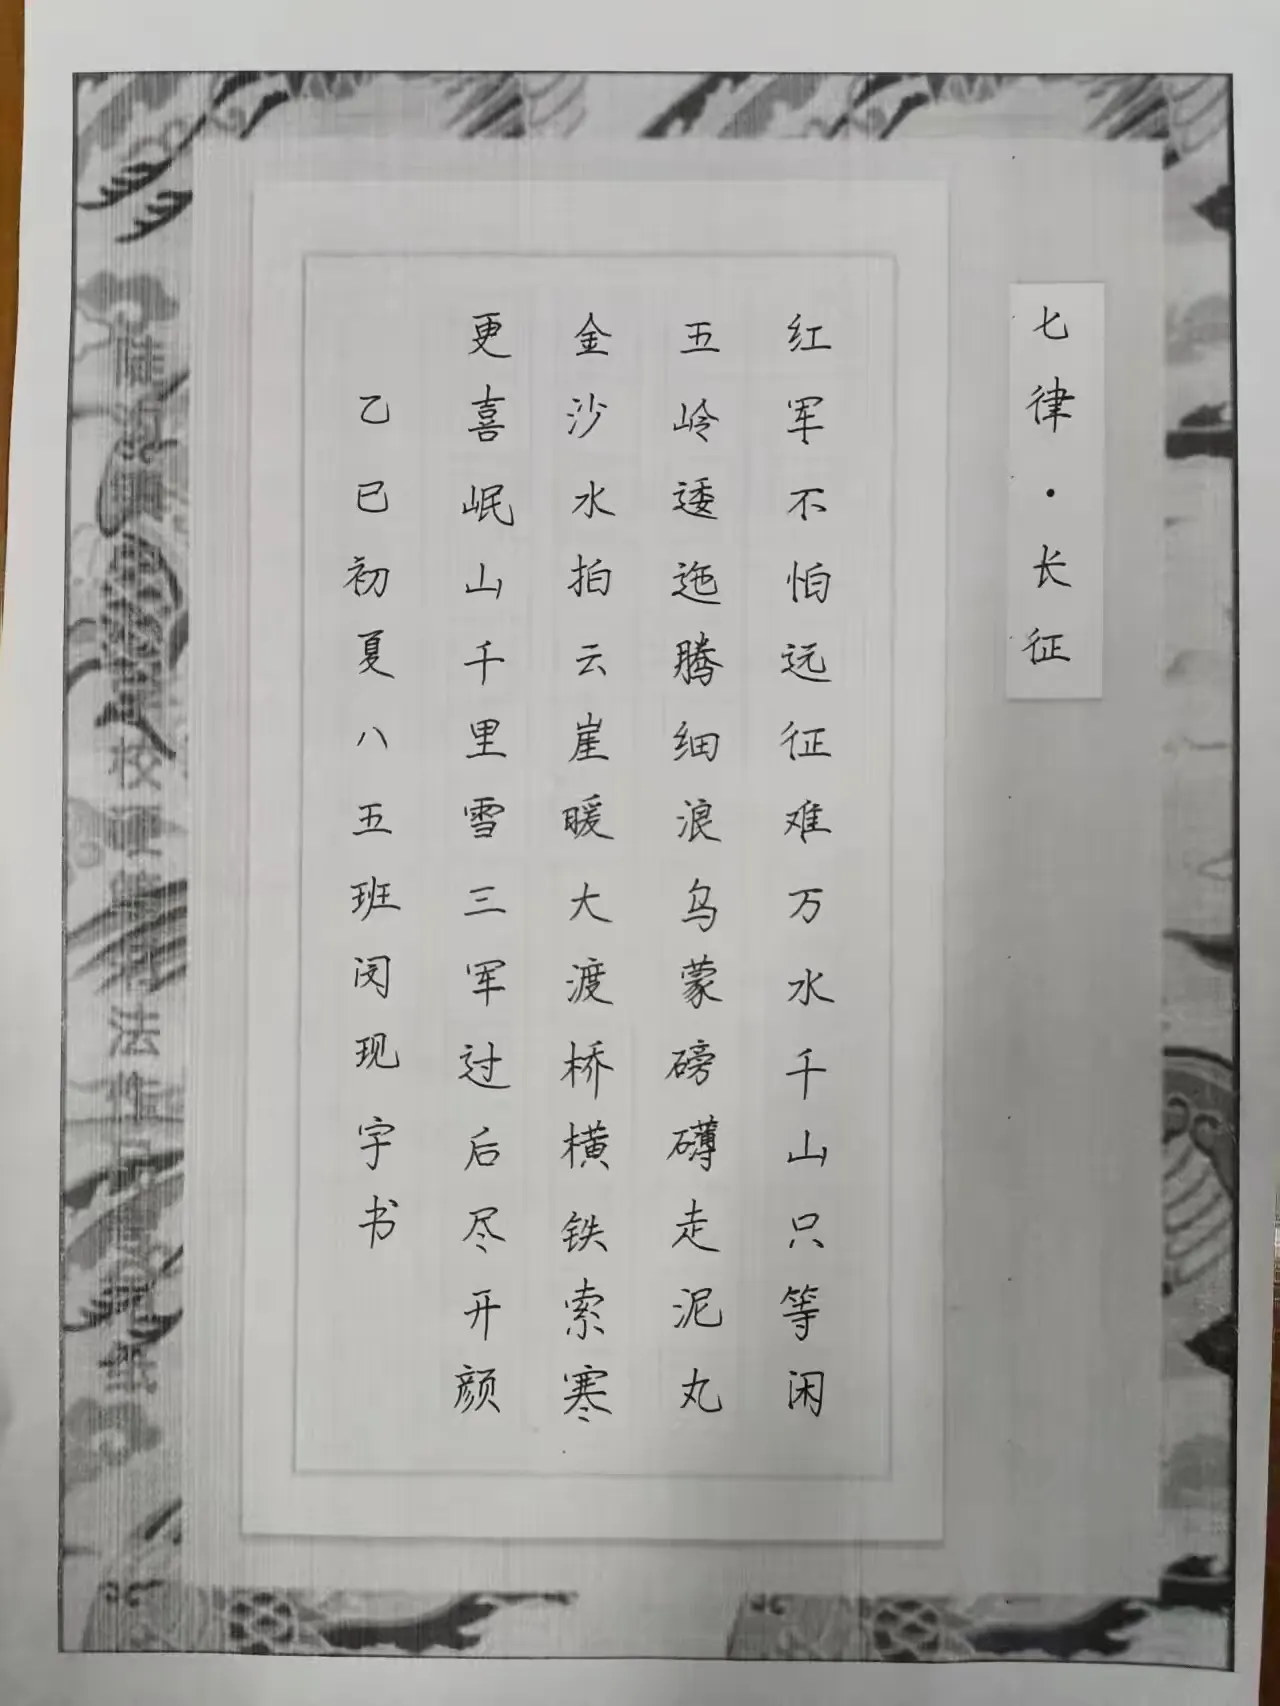 七律·长征
红军不怕远征难万水千山只等闲
五岭逶迤腾细浪乌蒙磅礴走泥丸
金沙水拍云崖暖大渡桥横铁索寒
更喜岷山千里雪三军过后尽开颜
乙巳初夏八五班闵现宇书